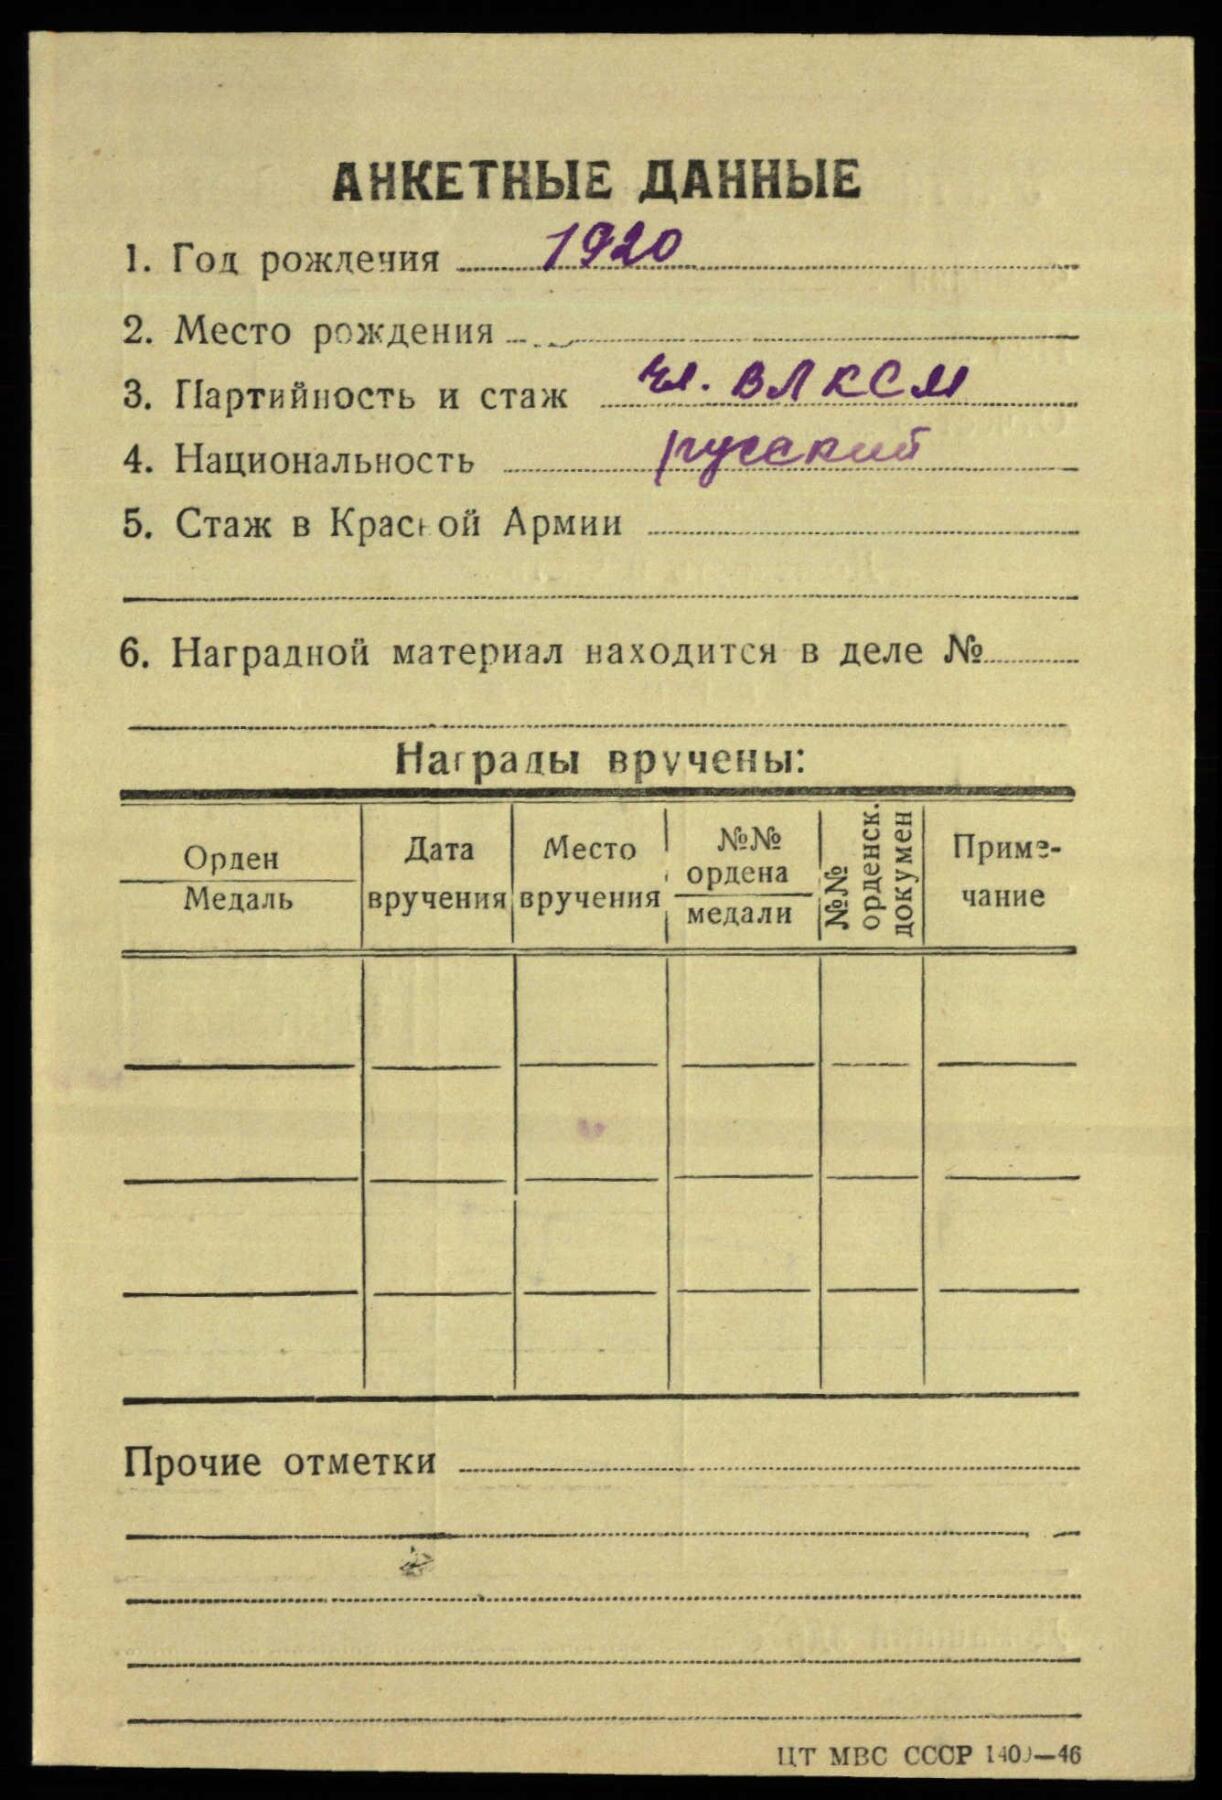 АНКЕТНЫЕ ДАННЫЕ
1. Год рождения 1920
2. Место рождения
3. Партийность и стаж чл. ВЛКСМ
4. Национальность русский
5. Стаж в Красной Армии
6. Наградной материал находится в деле №
Награды вручены:
Орден
Медаль
Дата
вручения
Место
вручения
№№
ордена
медали
№№
орденск.
докумен
Приме-
чание
Прочие отметки
ЦТ МВС СССР 1400—46